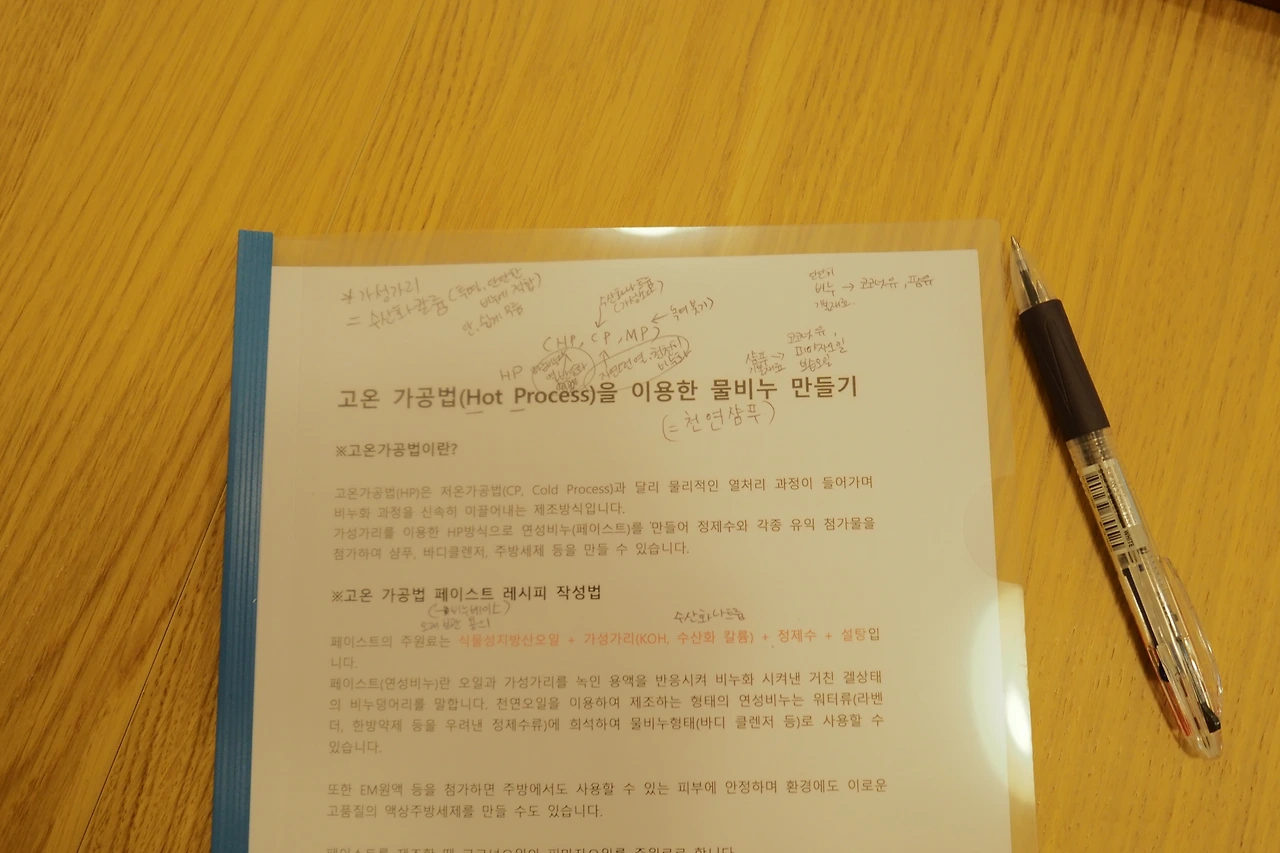 * 가성가리
= 수산화칼륨
수산화나트륨
(가성소다)
(HP, CP, MP)
녹여 붓기)
HP
자연건조
단단한
비누 → 코코넛유, 팜유
기본재료
샴푸 → 코코넛유,
기본재료 피마자오일
고온 가공법(Hot Process)을 이용한 물비누 만들기
(=천연샴푸)
※고온가공법이란?
고온가공법(HP)은 저온가공법(CP, Cold Process)과 달리 물리적인 열처리 과정이 들어가며
비누화 과정을 신속히 이끌어내는 제조방식입니다.
가성가리를 이용한 HP방식으로 연성비누(페이스트)를 만들어 정제수와 각종 유익 첨가물을
첨가하여 샴푸, 바디클렌저, 주방세제 등을 만들 수 있습니다.
※고온 가공법 페이스트 레시피 작성법
수산화나트륨
페이스트의 주원료는 식물성지방산오일 + 가성가리(KOH, 수산화 칼륨) + 정제수 + 설탕입
니다.
페이스트(연성비누)란 오일과 가성가리를 녹인 용액을 반응시켜 비누화 시켜낸 거친 겔상태
의 비누덩어리를 말합니다. 천연오일을 이용하여 제조하는 형태의 연성비누는 워터류(라벤
더, 한방약제 등을 우려낸 정제수류)에 희석하여 물비누형태(바디 클렌저 등)로 사용할 수
있습니다.
또한 EM원액 등을 첨가하면 주방에서도 사용할 수 있는 피부에 안정하며 환경에도 이로운
고품질의 액상주방세제를 만들 수도 있습니다.
페이스트를 제조할 때 코코넛오일이 피마자오일을 주원료로 합니다.